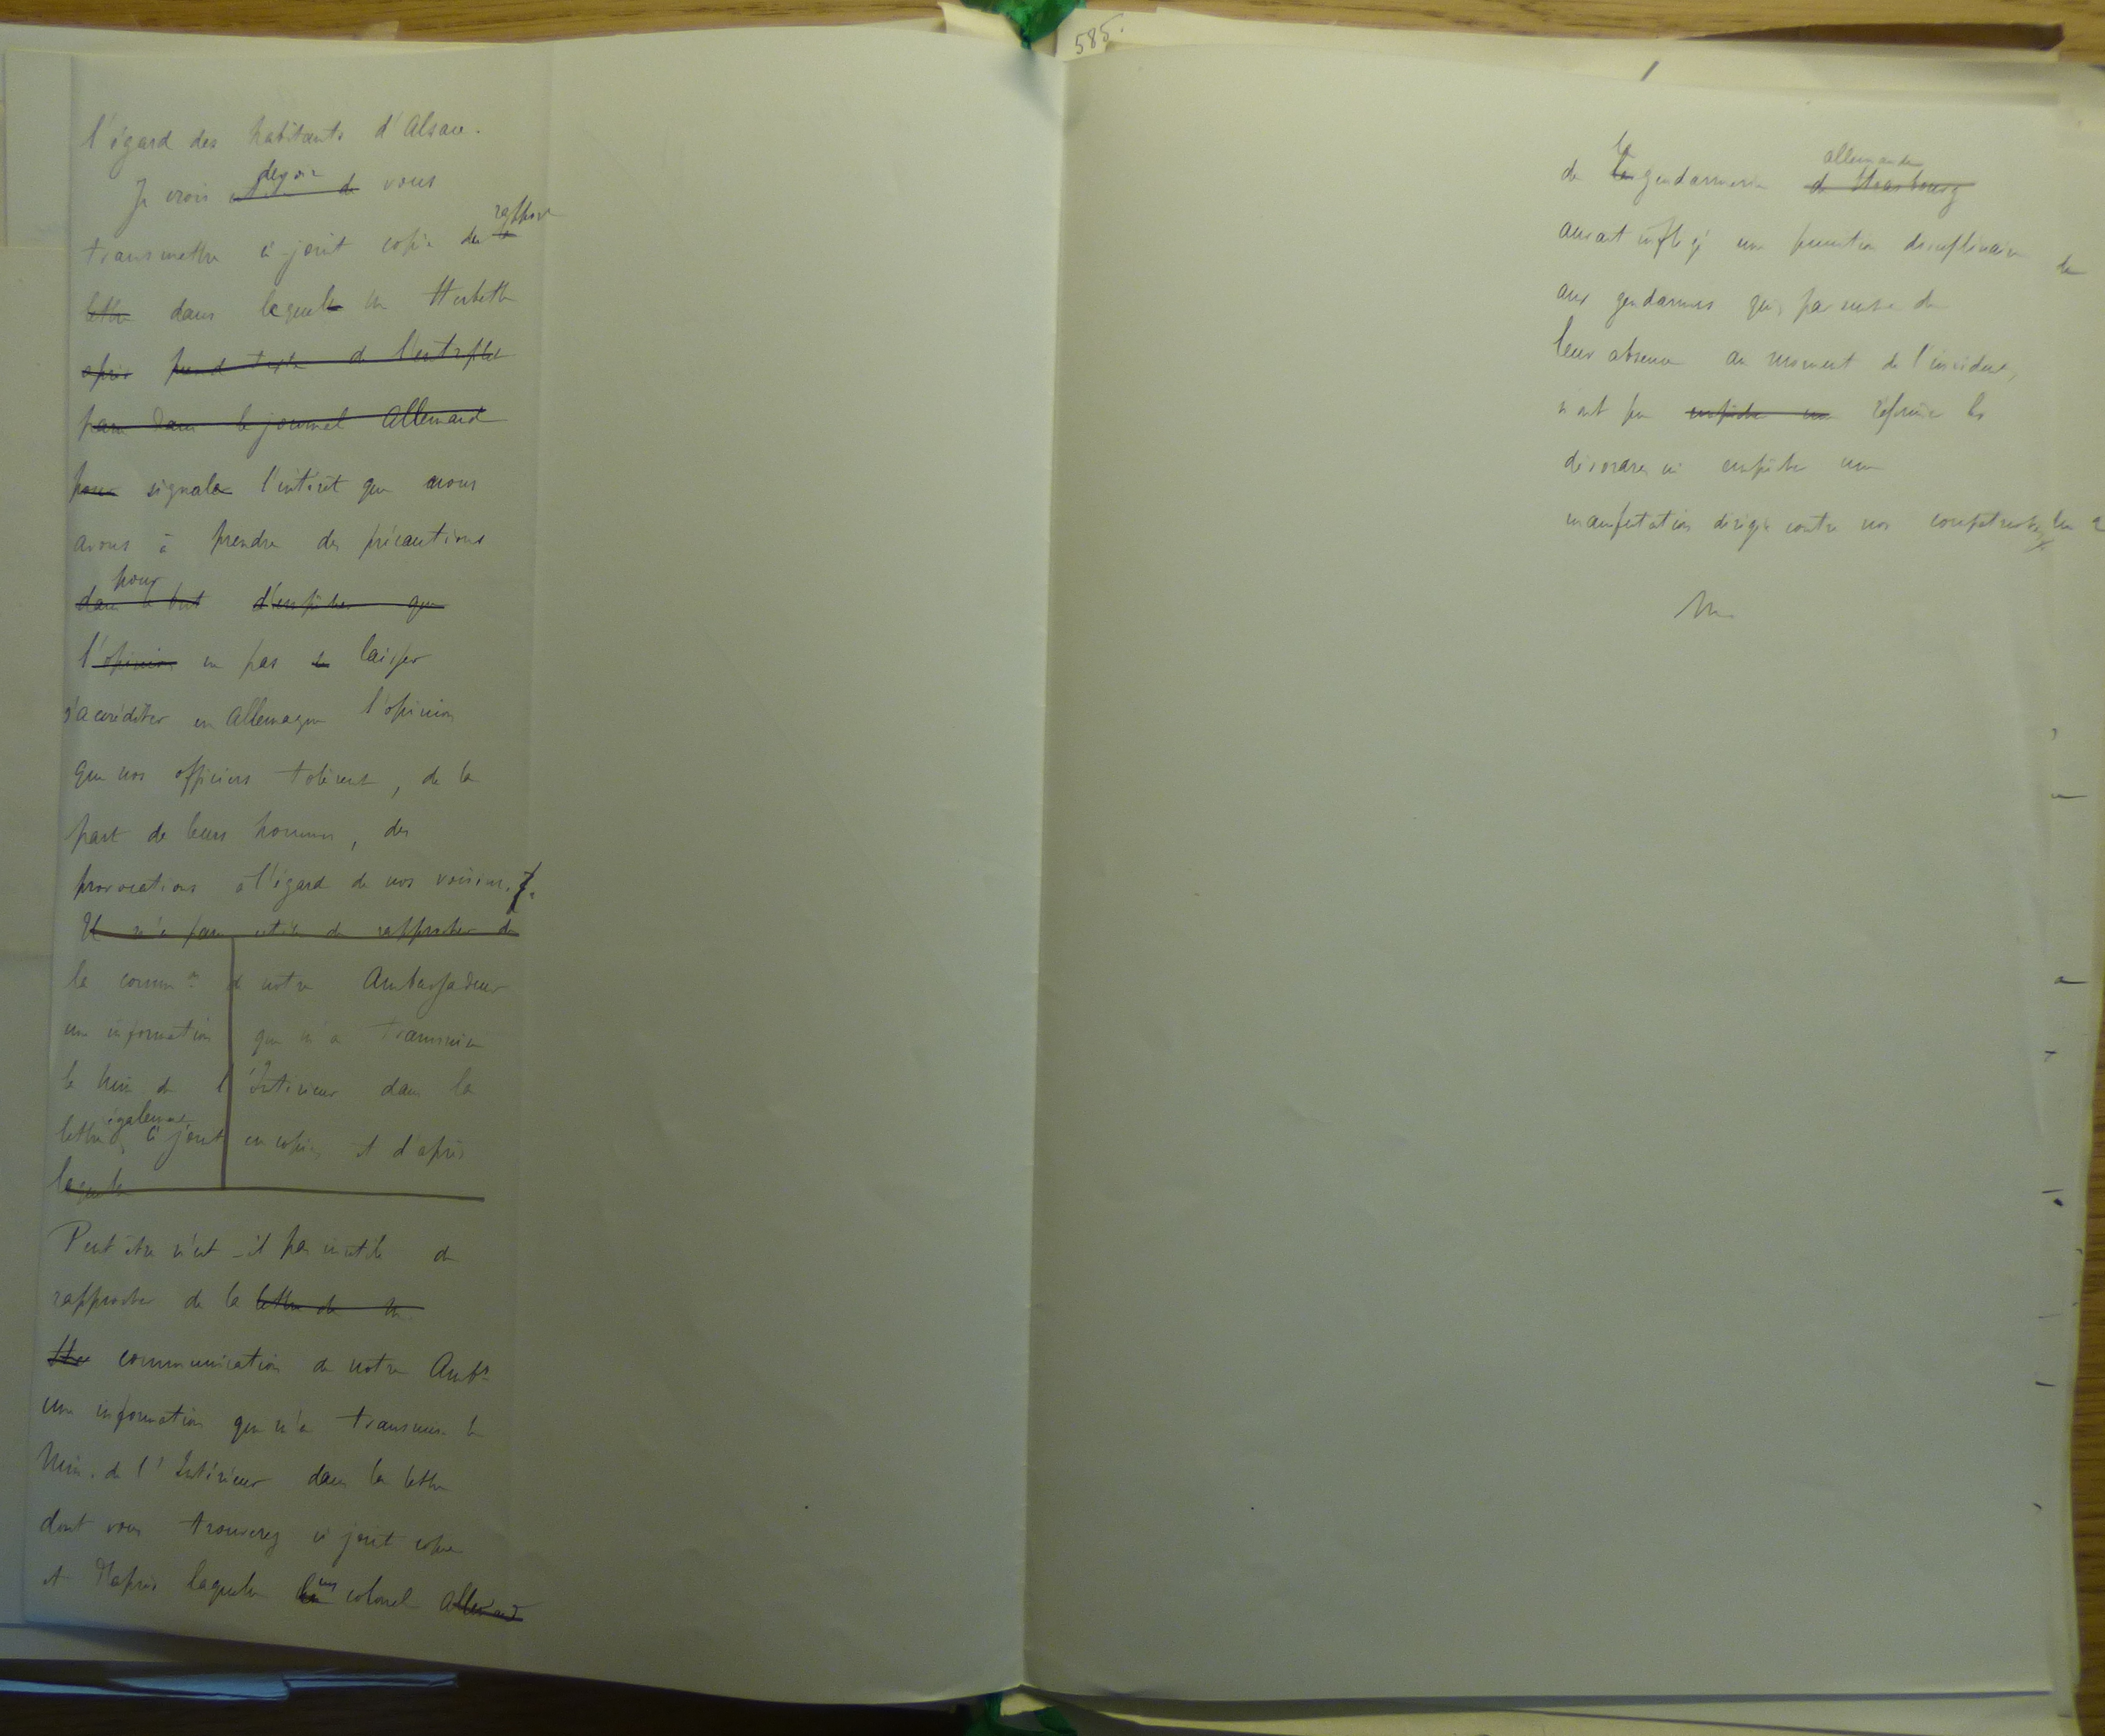 585.
l'égard des habitants d'Alsace.
Je crois utile de devoir vous
transmettre ci-joint copie du rapport
lettre dans lequel M Herbette
après pend texte de l'entrefilet
paru dans le journal Allemand
pour signale l'intérêt que nous
avons à prendre des précautions
dans le but pour d'empêcher que
l'opinion ne pas laisser
s'accréditer en Allemagne l'opinion
que nos officiers tolèrent, de la
part de leurs hommes, des
provocations à l'égard de nos voisins.
Il m'a paru utile de rapprocher de
la common de notre Ambassadeur
une information que m'a transmise
le Min de l'Intérieur dans la
lettre également ci jointe en copie, et d'après
laquelle
Peut être n'est-il pas inutile de
rapprocher de la lettre de M.
He communication de notre Ambr
une information que m'a transmise le
Min. de l'Intérieur dans la lettre
dont vous trouverez ci joint copie
et d'après laquelle un colonel allemand
de la gendarmerie de Strasbourg allemande
aurait infligé une punition disciplinaire
aux gendarmes qui, par suite de
leur absence au moment de l'incident,
n'ont pu empêcher une réprimer les
désordres ni empêcher une
manifestation dirigée contre nos compatriotes